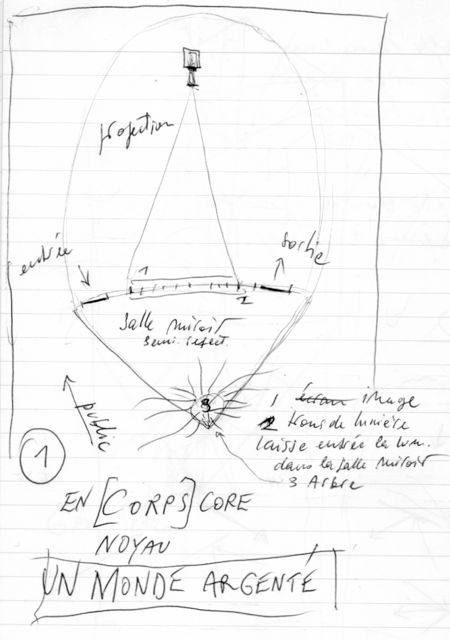 projection
entrée
sortie
1
2
Salle miroir
semi reflect.
3
public
1 écran image
2 trous de lumière
laisse entrée la lum.
dans la salle miroir
3 Arbre
1
EN [CORPS] CORE
NOYAU
UN MONDE ARGENTÉ